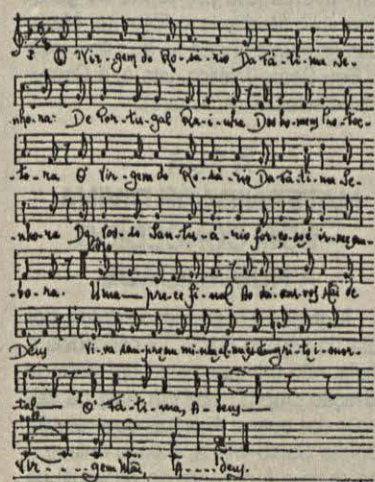 Ó Vir-gem do Ro-sá-rio Da Fá-ti-ma Se-
nho-ra: De Por-tu-gal Ra-i-nha Dos ho-mens Pro-tec-
-to-ra Ó Vir-gem do Ro-sá-rio Da Fá-ti-ma Se-
-nho-ra Do vos-so San-tu-á-rio
-bo-ra. Uma pre-ce fi-nal Ao dei-xar-vos Mãi de
Deus Vi-va sem-pre em minh'al-ma este gri-to i-mor-
tal Ó Fá-ti-ma, A-deus
Vir-gem Mãi, A-deus.